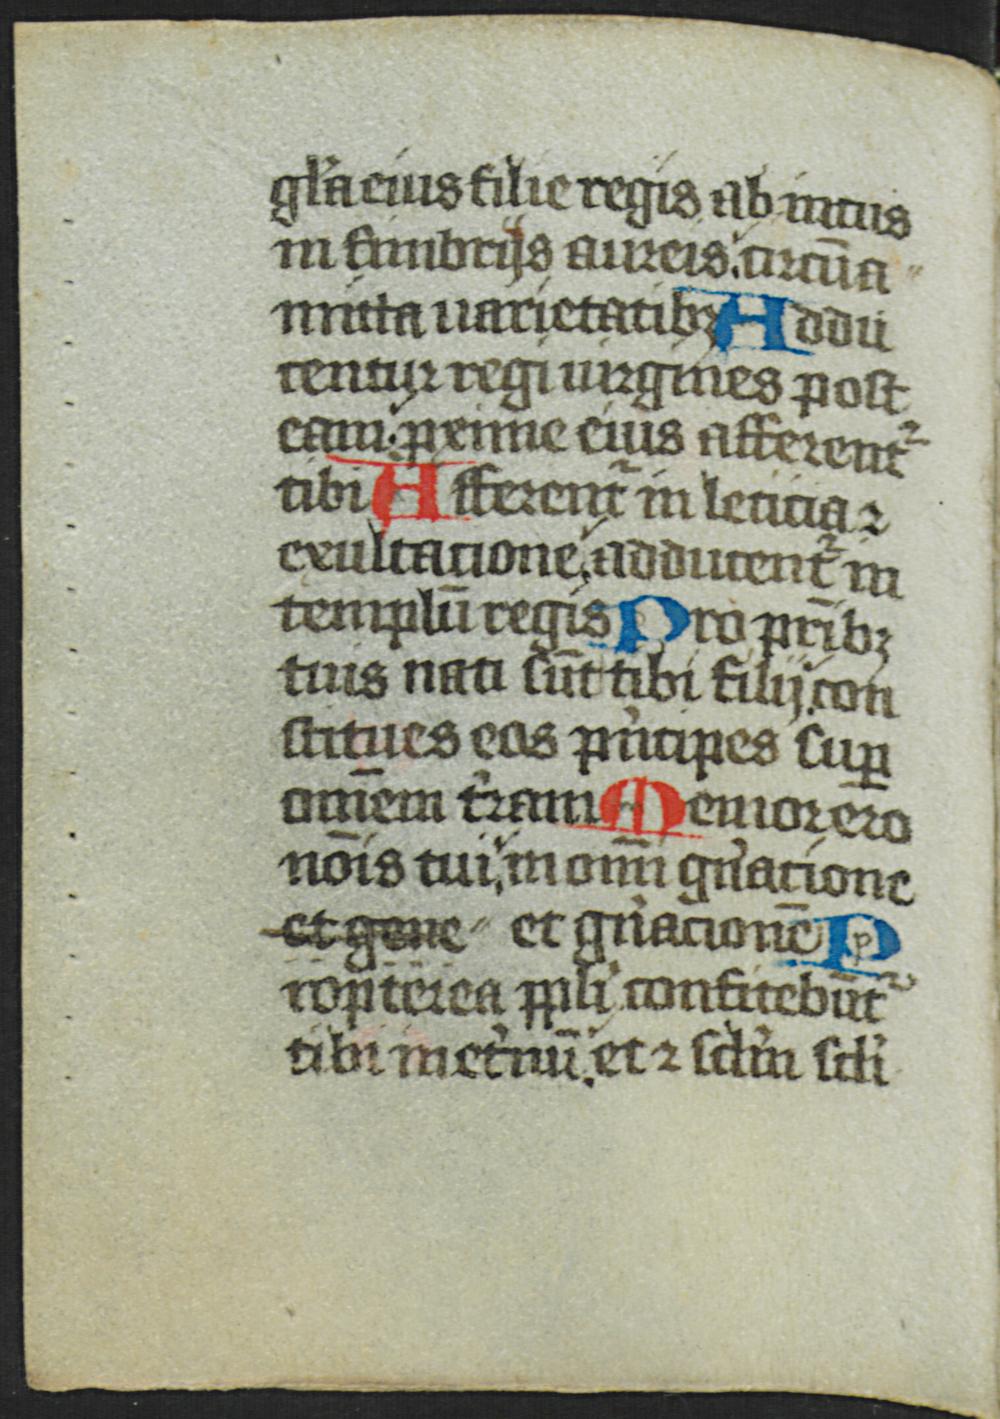 gl̄a eius filie regis ab intus
in fimbrijs aureis. circūa
micta uarietatibꝫ Addu
centur regi uirgines post
eam. ꝓxime eius afferentᷣ
tibi Afferentᷣ in leticia ⁊
exultacione. adducentᷣ in
templū regis Pro pr̄ibꝫ
tuis nati sūt tibi filij. con
stitues eos pͥncipes suꝑ
om̄em tr̄am Memor ero
nōis tui, in omī gn̄acione
et gene et gn̄acionē P
ropterea ppl̄i confitebūtᷣ
tibi in etn̄ū. et ⁊ scl̄m scl̄i